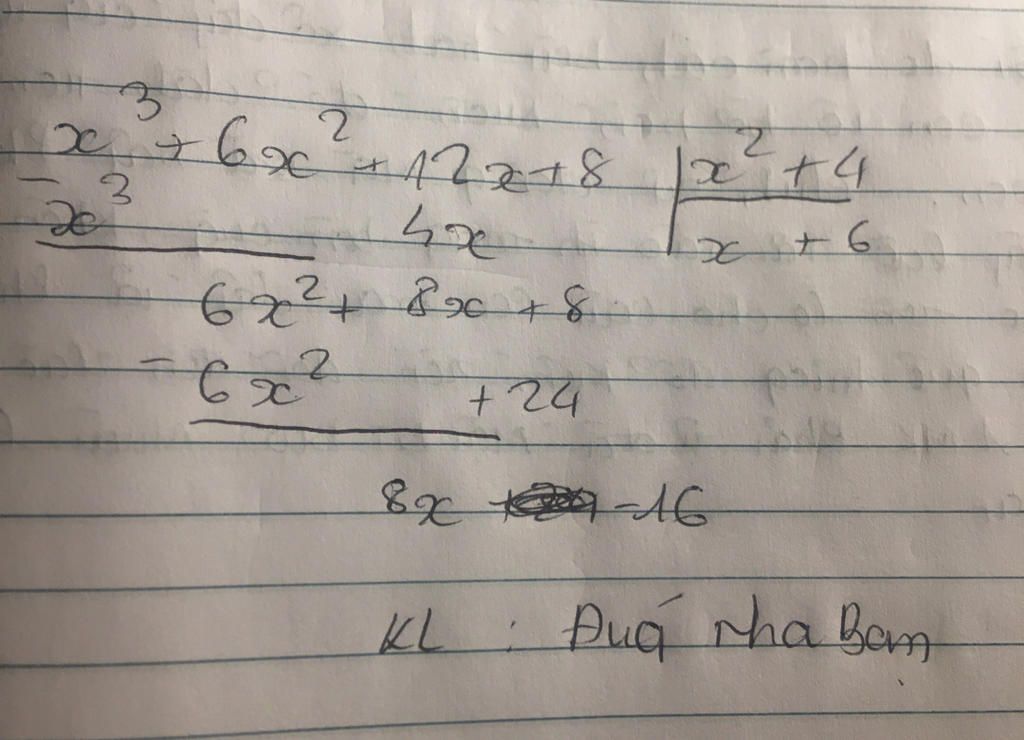 x³ + 6x² + 12x + 8 | x² + 4
- x³ 4x | x + 6
6x² + 8x + 8
- 6x² + 24
8x - 16
KL : Đuá nha Bạn